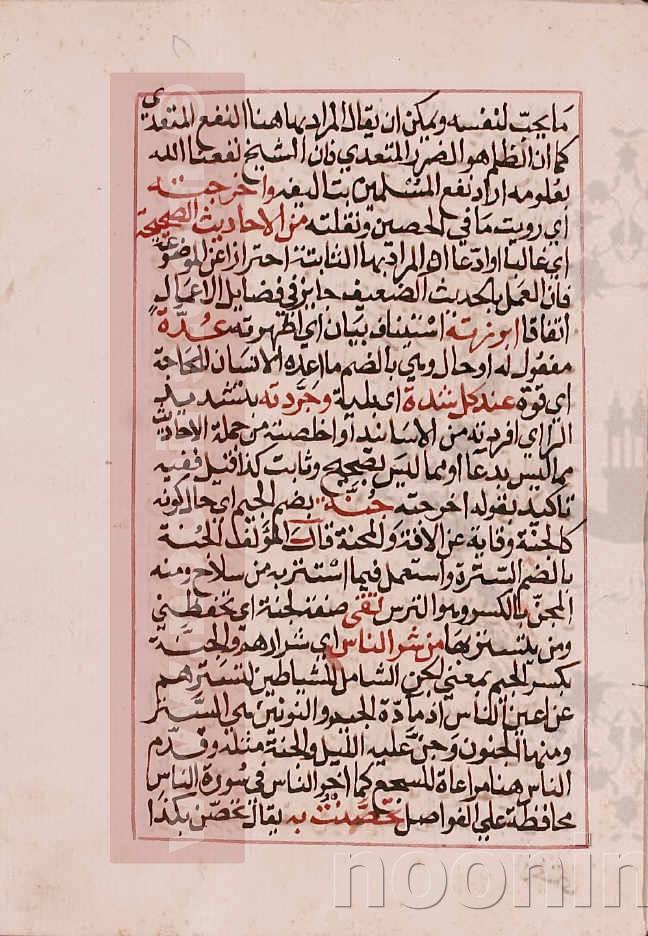 ما يحب لنفسه ويمكن ان يقال المراد بها هنا النفع المتعدي
كما ان الظلم هو الضرر المتعدي فان الشيخ نفعنا الله
بعلومه اراد نفع المسلمين بتاليفه واخرجته
اي رويت ما في الحصين ونقلته من الاحاديث الصحيحة
اي غالبا او ادعا المراد بها الثابتة احترازا عن الموضوعة
فان العمل بالحديث الضعيف جايز في فضايل الاعمال
اتفاقا ابرزته استيناف بيان اي اظهرته عدة
مفعول له او حال وهي بالضم ما اعده الانسان للحاجة
اي قوة عند كل شدة اي بلية وجردته بتشديد
الراي افردته من الاسانيد او اخلصته من جملة الاحاديث
مما ليس بدعا او مما ليس بصحيح وثابت كذا قيل ففيه
تاكيد بقوله اخرجته جنة بضم الجيم اي حال كونه
كالجنة وقاية عن الافة والمحنة قال المؤلف الجنة
بالضم السترة واستعمل فيما استتر به من سلاح ومنه
المجن بالكسر وهو الترس تقي صفة لجنة اي تحفظني
ومن يتستر بها من شر الناس اي شرارهم والجنة
بكسر الجيم بمعني الجن الشامل للشياطين لتسترهم
عن اعين الناس اذ مادة الجيم والنونين هي الستر
ومنها الجنون وجن عليه الليل والجنة مثله وقدم
الناس هنا مراعاة للسجع كما اخر الناس في سورة الناس
محافظة علي الفواصل تحصنت به يقال تحصن بكذا
noonin